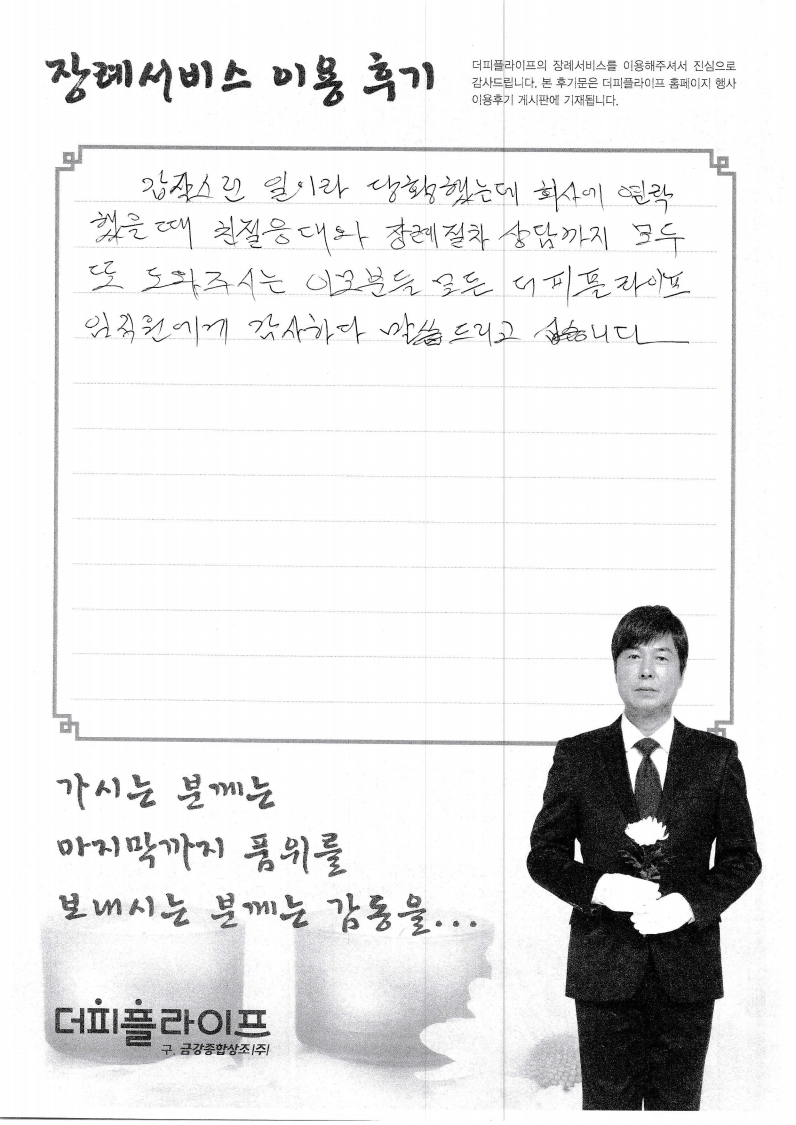 장례서비스 이용 후기
더피플라이프의 장례서비스를 이용해주셔서 진심으로
감사드립니다. 본 후기문은 더피플라이프 홈페이지 행사
이용후기 게시판에 기재됩니다.
갑작스런 일이라 당황했는데 회사에 연락
했을때 친절응대와 장례절차 상담까지 모두
또 도와주시는 이모분들 모든 더피플라이프
임직원에게 감사하다 말씀드리고 싶습니다
가시는 분께는
마지막까지 품위를
보내시는 분께는 감동을...
더피플라이프
구. 금강종합상조(주)